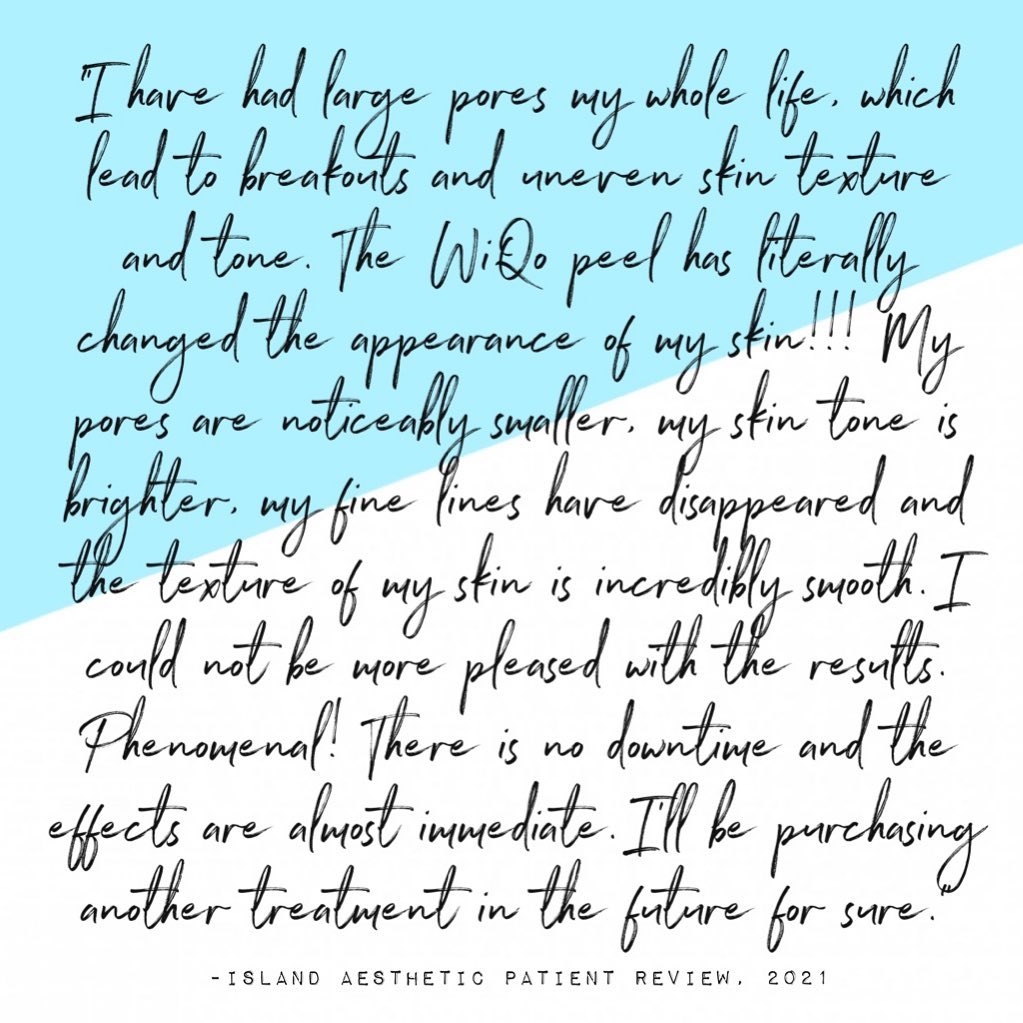 "I have had large pores my whole life, which
lead to breakouts and uneven skin texture
and tone. The WiQo peel has literally
changed the appearance of my skin!!! My
pores are noticeably smaller, my skin tone is
brighter, my fine lines have disappeared and
the texture of my skin is incredibly smooth. I
could not be more pleased with the results.
Phenomenal! There is no downtime and the
effects are almost immediate. I'll be purchasing
another treatment in the future for sure."
-ISLAND AESTHETIC PATIENT REVIEW, 2021